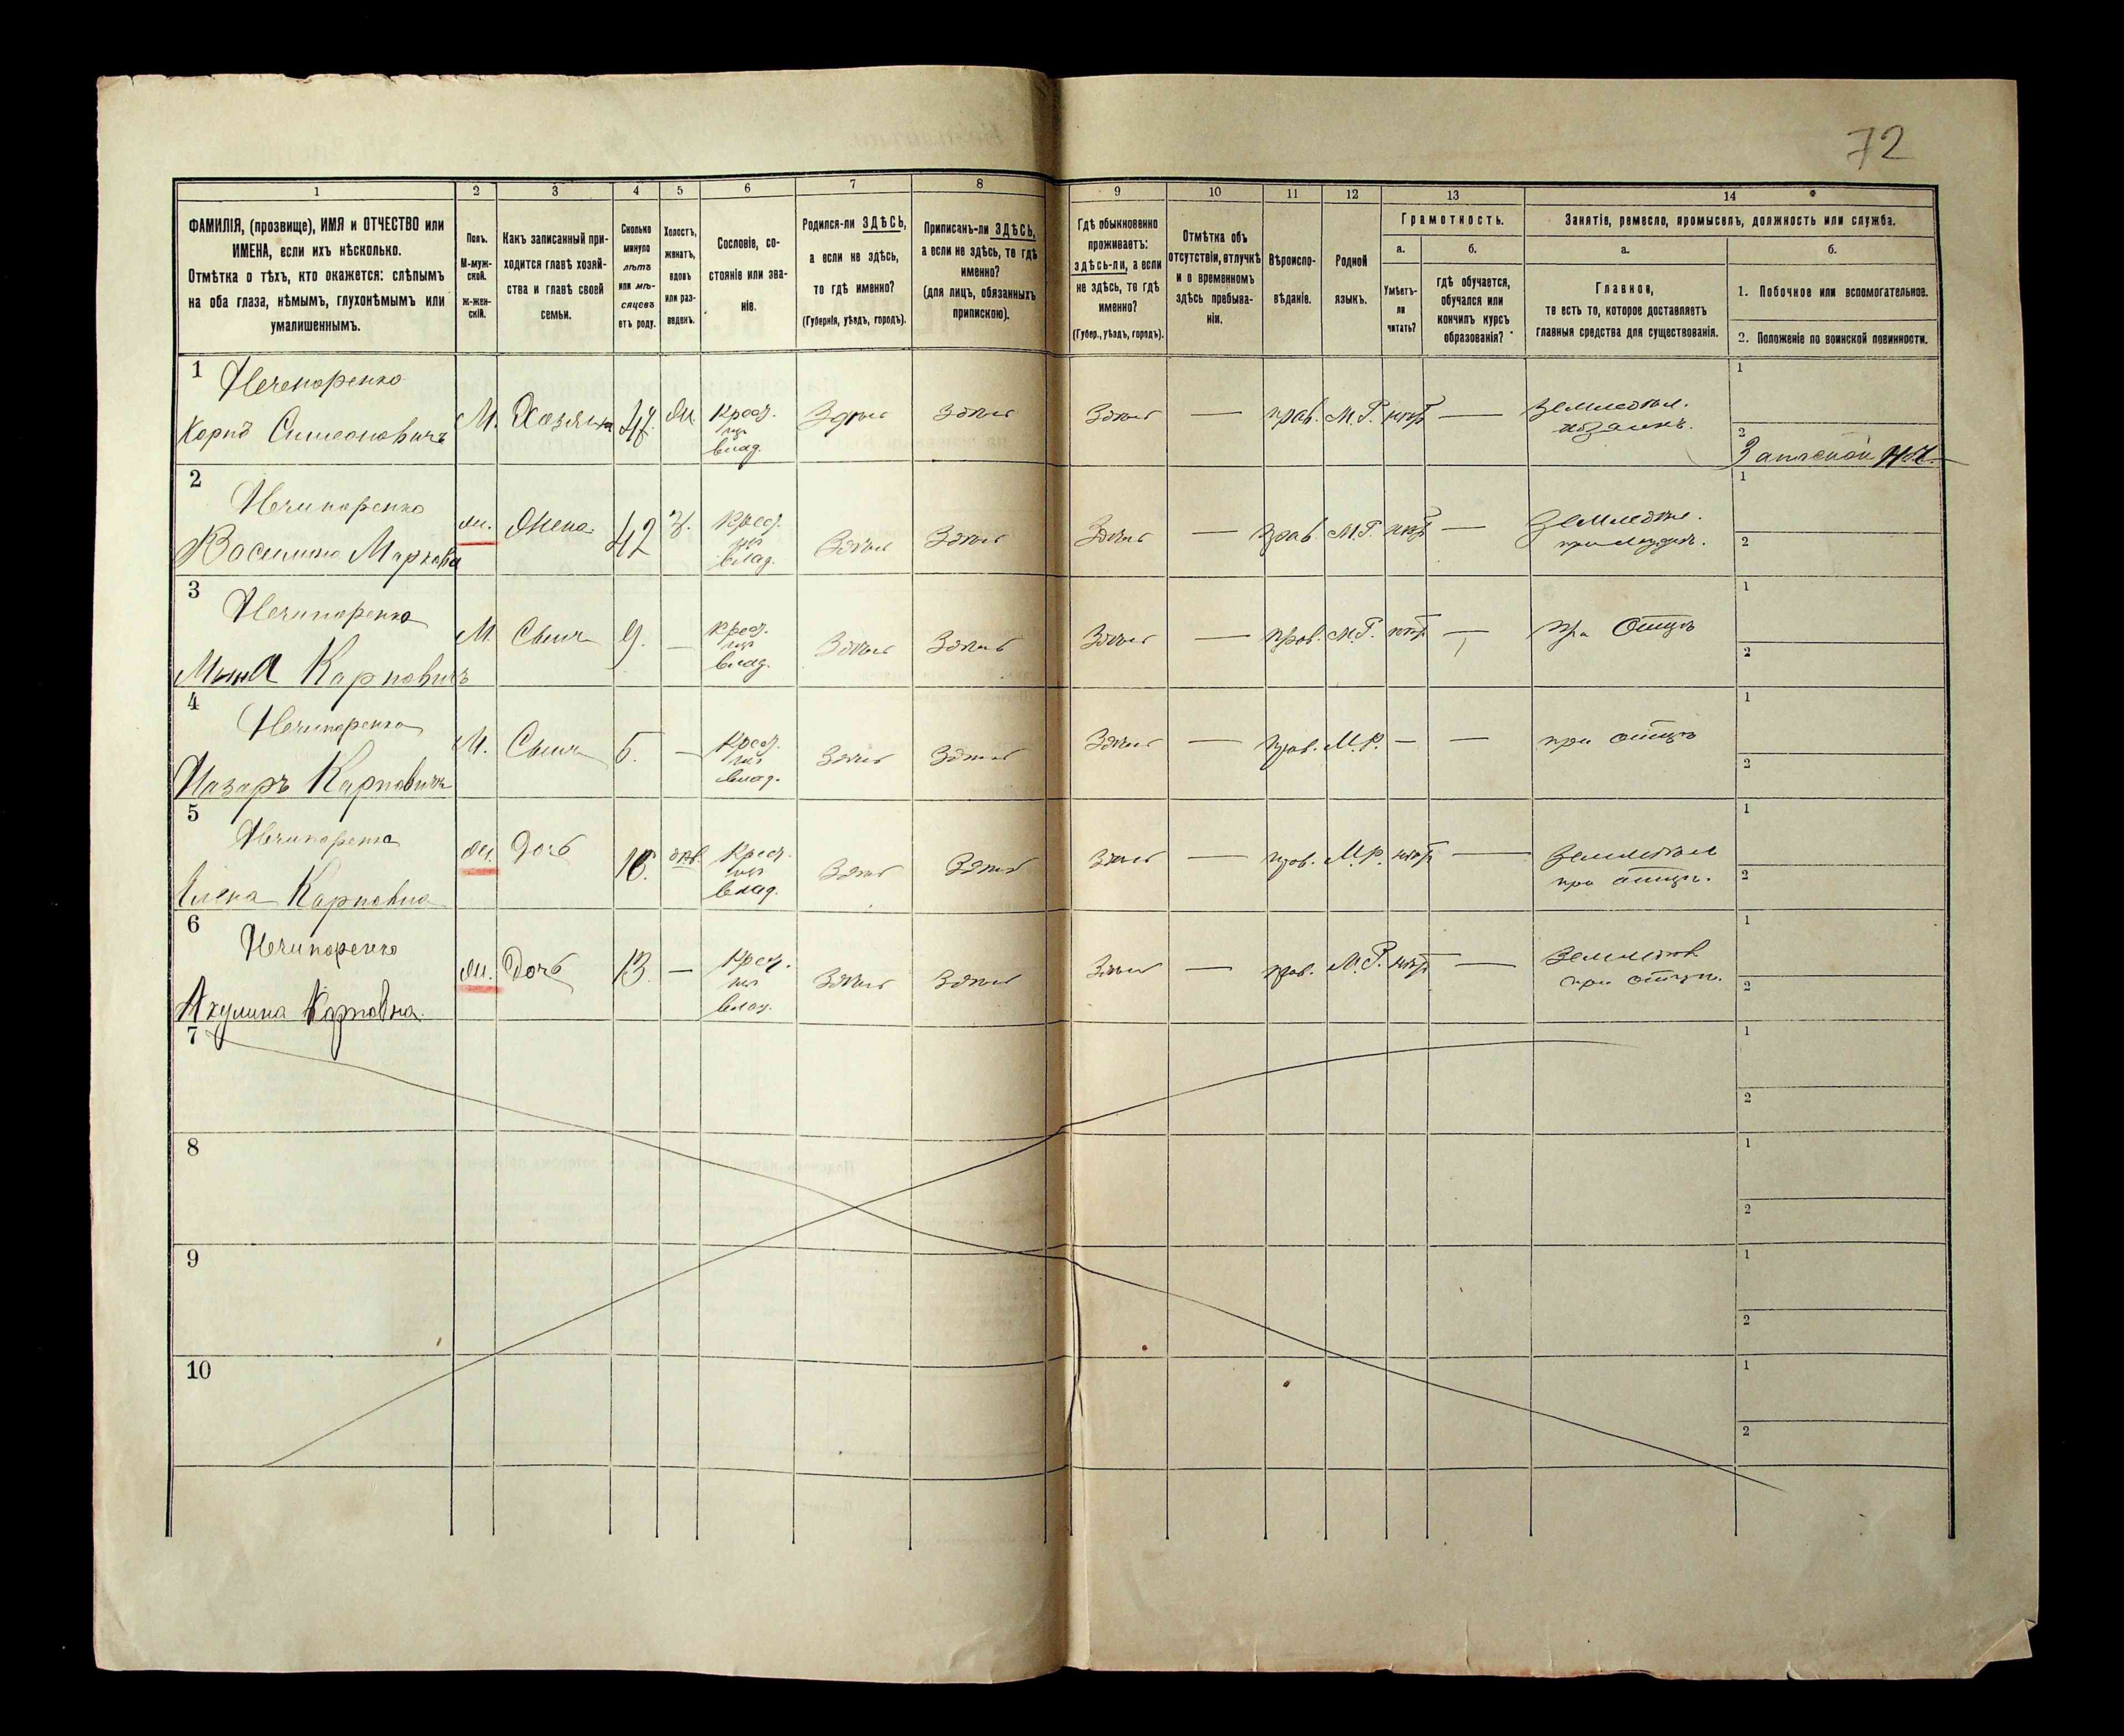 72
1 2 3 4 5 6 7 8 9 10 11 12 13 14
ФАМИЛІЯ, (прозвище), ИМЯ и ОТЧЕСТВО или
ИМЕНА, если ихъ нѣсколько.
Отмѣтка о тѣхъ, кто окажется: слѣпымъ
на оба глаза, нѣмымъ, глухонѣмымъ или
умалишеннымъ.
Полъ.
М-муж-
ской.
Ж-жен-
скій.
Какъ записанный при-
ходится главѣ хозяй-
ства и главѣ своей
семьи.
Сколько
минуло
лѣтъ
или мѣ-
сяцевъ
отъ роду.
Холостъ,
женатъ,
вдовъ
или раз-
веденъ.
Сословіе, со-
стояніе или зва-
ніе.
Родился-ли ЗДѢСЬ,
а если не здѣсь,
то гдѣ именно?
(Губернія, уѣздъ, городъ).
Приписанъ-ли ЗДѢСЬ,
а если не здѣсь, то гдѣ
именно?
(для лицъ, обязанныхъ
припискою).
Гдѣ обыкновенно
проживаетъ:
здѣсь-ли, а если
не здѣсь, то гдѣ
именно?
(Губер., уѣздъ, городъ).
Отмѣтка объ
отсутствіи, отлучкѣ
и о временномъ
здѣсь пребыва-
ніи.
Вѣроиспо-
вѣданіе.
Родной
языкъ.
Грамотность.
а.
Умѣетъ-
ли
читать?
б.
гдѣ обучается,
обучался или
кончилъ курсъ
образованія?
Занятіе, ремесло, промыселъ, должность или служба.
а.
Главное,
то есть то, которое доставляетъ
главныя средства для существованія.
б.
1. Побочное или вспомогательное.
2. Положеніе по воинской повинности.
1 Нечепоренко
Карпъ Симеоновичъ
М. Хозяинъ 47. Ж.
Крест.
изъ
влад.
Здѣсь Здѣсь Здѣсь — прав. М.Р. нѣтъ —
Земледѣл.
хозяинъ.
1
2
2 Нечипоренко
Василина Маркова
Ж. Жена 42 З.
Крест.
изъ
влад.
Здѣсь Здѣсь Здѣсь — прав. М.Р. нѣтъ —
Земледѣл.
при мужѣ.
1
2
3 Нечипоренко
Карповичъ
М. Сынъ 9. —
Крест.
изъ
влад.
Здѣсь Здѣсь Здѣсь — прав. М.Р. нѣтъ —
При Отцѣ
1
2
4 Нечипоренко
Назаръ Карповичъ
М. Сынъ 5. —
Крест.
изъ
влад.
Здѣсь Здѣсь Здѣсь — прав. М.Р. — —
при отцѣ
1
2
5 Нечипоренко
Елена Карповна
Ж. Дочь
Крест.
изъ
влад.
Здѣсь Здѣсь Здѣсь — прав. М.Р. нѣтъ —
Земледѣл
при отцѣ.
1
2
6 Нечипоренко
Акулина Карповна.
Ж. Дочь 13. —
Крест.
изъ
влад.
Здѣсь Здѣсь Здѣсь — прав. М.Р. нѣтъ —
Земледѣл
при отцѣ.
1
2
7
1
2
8
1
2
9
1
2
10
1
2